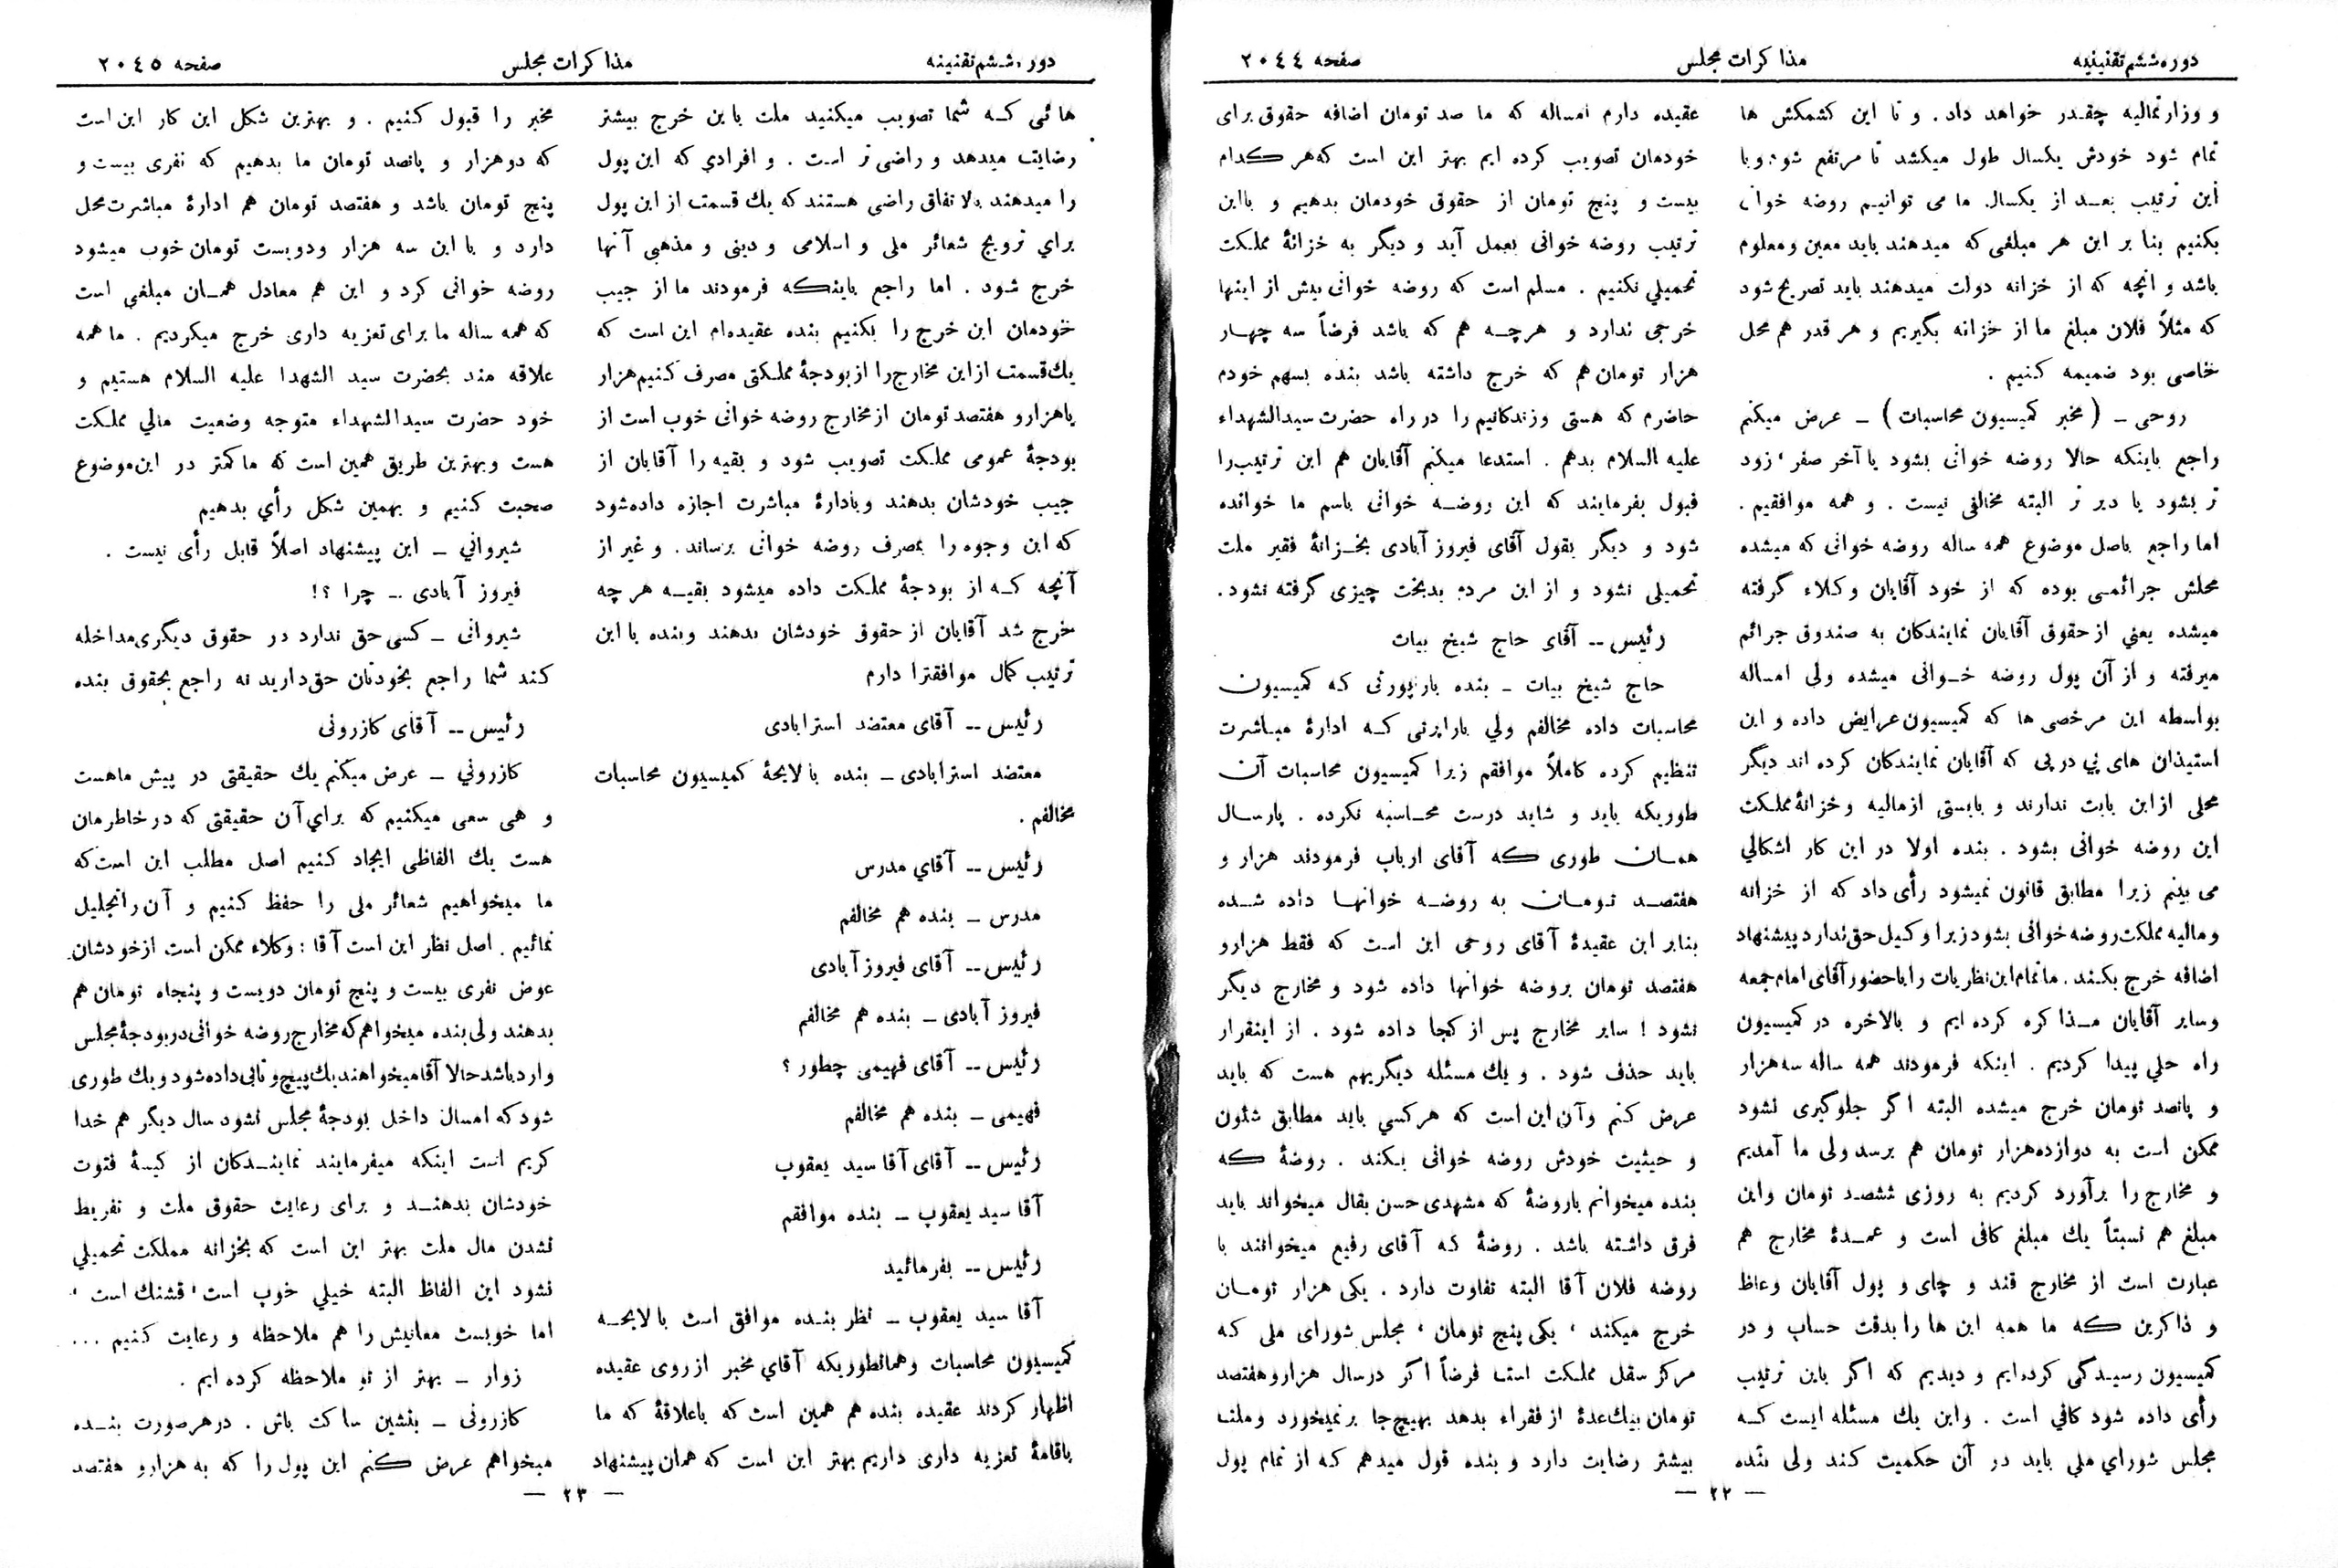 دوره ششم تقنینیه
مذاکرات مجلس
صفحه ۲۰٤٤
و وزارتمالیه چقدر خواهد داد. و تا این کشمکش ها
تمام شود خودش یکسال طول میکشد تا مرتفع شود و با
این ترتیب بعد از یکسال ما می توانیم روضه خوانی
بکنیم بنا بر این هر مبلغی که میدهند باید معین و معلوم
باشد و آنچه که از خزانه دولت میدهند باید تصریح شود
که مثلاً فلان مبلغ ما از خزانه بگیریم و هر قدر هم محل
خاصی بود ضمیمه کنیم .
روحی ـ ( مخبر کمیسیون محاسبات ) ـ عرض میکنم
راجع باینکه حالا روضه خوانی بشود یا آخر صفر ، زود
تر بشود یا دیر تر البته مخالفی نیست . و همه موافقیم .
اما راجع باصل موضوع همه ساله روضه خوانی که میشده
محلش جرائمی بوده که از خود آقایان وکلاء گرفته
میشده یعنی از حقوق آقایان نمایندکان به صندوق جرائم
میرفته و از آن پول روضه خـوانی میشده ولی امساله
بواسطه این مرخصی ها که کمیسیون عرایض داده و این
استیذان های پی در پی که آقایان نمایندکان کرده اند دیگر
محلی از این بابت ندارند و بایستی از مالیه و خزانهٔ مملکت
این روضه خوانی بشود . بنده اولا در این کار اشکالی
می بینم زیرا مطابق قانون نمیشود رأی داد که از خزانه
و مالیه مملکت روضه خوانی بشود زیرا وکیل حق ندارد پیشنهاد
اضافه خرج بکند . ما تمام این نظریات را با حضور آقای امام جمعه
وسایر آقایان مـذاکره کرده ایم و بالاخره در کمیسیون
راه حلی پیدا کردیم . اینکه فرمودند همه ساله سه هزار
و پانصد تومان خرج میشده البته اگر جلوگیری نشود
ممکن است به دوازده هزار تومان هم برسد ولی ما آمدیم
و مخارج را برآورد کردیم به روزی ششصد تومان و این
مبلغ هم نسبتاً یك مبلغ کافی است و عمـدهٔ مخارج هم
عبارت است از مخارج قند و چای و پول آقایان وعاظ
و ذاکرین که ما همه این ها را بدقت حساب و در
کمیسیون رسیـدگی کرده ایم و دیدیم که اگر باین ترتیب
رأی داده شود کافی است . و این یك مسئله ایست کـه
مجلس شورای ملی باید در آن حکمیت کند ولی بنده
عقیده دارم امساله که ما صد تومان اضافه حقوق برای
خودمان تصویب کرده ایم بهتر این است که هر کدام
بیست و پنج تومان از حقوق خودمان بدهیم و بااین
ترتیب روضه خوانی بعمل آید و دیگر به خزانهٔ مملکت
تحمیلی نکنیم . مسلم است که روضه خوانی بیش از اینها
خرجی ندارد و هرچـه هم که باشد فرضاً سه چهـار
هزار تومان هم که خرج داشته باشد بنده بسهم خودم
حاضرم که هستی وزندکانیم را در راه حضرت سیدالشهداء
علیه السلام بدهم . استدعا میکنم آقایان هم این ترتیب را
قبول بفرمایند که این روضـه خوانی باسم ما خوانده
شود و دیگر بقول آقای فیروز آبادی بخـزانهٔ فقیر ملت
تحمیلی نشود و از این مردم بدبخت چیزی گرفته نشود .
رئیس ــ آقای حاج شیخ بیات
حاج شیخ بیات ـ بنده باراپورتی که کمیسیون
محاسبات داده مخالفم ولی باراپرتی کـه ادارهٔ مباشرت
تنظیم کرده کاملاً موافقم زیرا کمیسیون محاسبات آن
طوریکه باید و شاید درست محـاسبه نکرده . پارسال
همـان طوری که آقای ارباب فرمودند هزار و
هفتصـد تومـان به روضـه خوانها داده شـده
بنابر این عقیدهٔ آقای روحی این است که فقط هزارو
هفتصد تومان بروضه خوانها داده شود و مخارج دیگر
نشود ! سایر مخارج پس از کجا داده شود . از اینقرار
باید حذف شود . و یك مسئله دیگریهم هست که باید
عرض کنم وآن این است که هر کسی باید مطابق شئون
و حیثیت خودش روضه خوانی بکند . روضهٔ که
بنده میخوانم باروضهٔ که مشهدی حسن بقال میخواند باید
فرق داشته باشد . روضهٔ که آقای رفیع میخوانند با
روضه فلان آقا البته تفاوت دارد . یکی هزار تومـان
خرج میکند ، یکی پنج تومان ، مجلس شورای ملی کـه
مرکز ثقل مملکت است فرضاً اگر درسال هزاروهفتصد
تومان بیك عدهٔ از فقراء بدهد بهیچ جا برنمیخورد وملت
بیشتر رضایت دارد و بنده قول میدهم که از تمام پول
— ۲۲ —
دوره ششم تقنینه
مذاکرات مجلس
صفحه ۲۰٤٥
هائی کـه شما تصویب میکنید ملت باین خرج بیشتر
رضایت میدهد و راضی تر است . و افرادی که این پول
را میدهند بالاتفاق راضی هستند که یك قسمت از این پول
برای ترویج شعائر ملی و اسلامی و دینی و مذهبی آنها
خرج شود . اما راجع باینکه فرمودند ما از جیب
خودمان این خرج را بکنیم بنده عقیده‌ام این است که
یك قسمت از این مخارج را از بودجهٔ مملکتی مصرف کنیم هزار
یاهزارو هفتصد تومان از مخارج روضه خوانی خوب است از
بودجهٔ عمومی مملکت تصویب شود و بقیه را آقایان از
جیب خودشان بدهند وبادارهٔ مباشرت اجازه داده شود
که این وجوه را بمصرف روضه خوانی برساند . و غیر از
آنچه کـه از بودجهٔ مملکت داده میشود بقیـه هر چه
خرج شد آقایان از حقوق خودشان بدهند وبنده با این
ترتیب کمال موافقترا دارم
رئیس ــ آقای معتضد استرابادی
معتضد استرابادی ـ بنده با لایحهٔ کمیسیون محاسبات
مخالفم .
رئیس ــ آقای مدرس
مدرس ـ بنده هم مخالفم
رئیس ــ آقای فیروزآبادی
فیروز آبادی ـ بنده هم مخالفم
رئیس ــ آقای فهیمی چطور ؟
فهیمی ـ بنده هم مخالفم
رئیس ــ آقای آقا سید یعقوب
آقا سید یعقوب ـ بنده موافقم
رئیس ــ بفرمائید
آقا سید یعقوب ـ نظر بنـده موافق است با لایحـه
کمیسیون محاسبات وهمانطوریکه آقای مخبر از روی عقیده
اظهار کردند عقیده بنده هم همین است که باعلاقهٔ که ما
باقامهٔ تعزیه داری داریم بهتر این است که همان پیشنهاد
مخبر را قبول کنیم . و بهترین شکل این کار این است
که دوهزار و پانصد تومان ما بدهیم که نفری بیست و
پنج تومان باشد و هفتصد تومان هم ادارهٔ مباشرت محل
دارد و با این سه هزار ودویست تومان خوب میشود
روضه خوانی کرد و این هم معادل همـان مبلغی است
که همه ساله ما برای تعزیه داری خرج میکردیم . ما همه
علاقه مند بحضرت سید الشهدا علیه السلام هستیم و
خود حضرت سیدالشهداء متوجه وضعیت مالی مملکت
هست وبهترین طریق همین است که ما کمتر در این موضوع
صحبت کنیم و بهمین شکل رأی بدهیم
شیروانی ـ این پیشنهاد اصلاً قابل رأی نیست .
فیروز آبادی ـ چرا ؟!
شیروانی ـ کسی حق ندارد در حقوق دیگری مداخله
کند شما راجع بخودتان حق دارید نه راجع بحقوق بنده
رئیس ــ آقای کازرونی
کازرونی ـ عرض میکنم یك حقیقتی در پیش ماهست
و هی سعی میکنیم که برای آن حقیقتی که در خاطرمان
هست یك الفاظی ایجاد کنیم اصل مطلب این است که
ما میخواهیم شعائر ملی را حفظ کنیم و آن راتجلیل
نمائیم . اصل نظر این است آقا : وکلاء ممکن است ازخودشان
عوض نفری بیست و پنج تومان دویست و پنجاه تومان هم
بدهند ولی بنده میخواهم که مخارج روضه خوانی در بودجهٔ مجلس
وارد باشد حالا آقا میخواهند یك پیچ و تابی داده شود و یك طوری
شود که امسال داخل بودجهٔ مجلس نشود سال دیگر هم خدا
کریم است اینکه میفرمایند نماینـدکان از کیسهٔ فتوت
خودشان بدهنـد و برای رعایت حقوق ملت و تفریط
نشدن مال ملت بهتر این است که بخزانه مملکت تحمیلی
نشود این الفاظ البته خیلی خوب است ، قشنك است ،
اما خوبست معانیش را هم ملاحظه و رعایت کنیم ...
زوار ـ بهتر از تو ملاحظه کرده ایم .
کازرونی ـ بنشین ساکت باش . درهرصورت بنـده
میخواهم عرض کنم این پول را که به هزارو هفتصد
— ۲۳ —